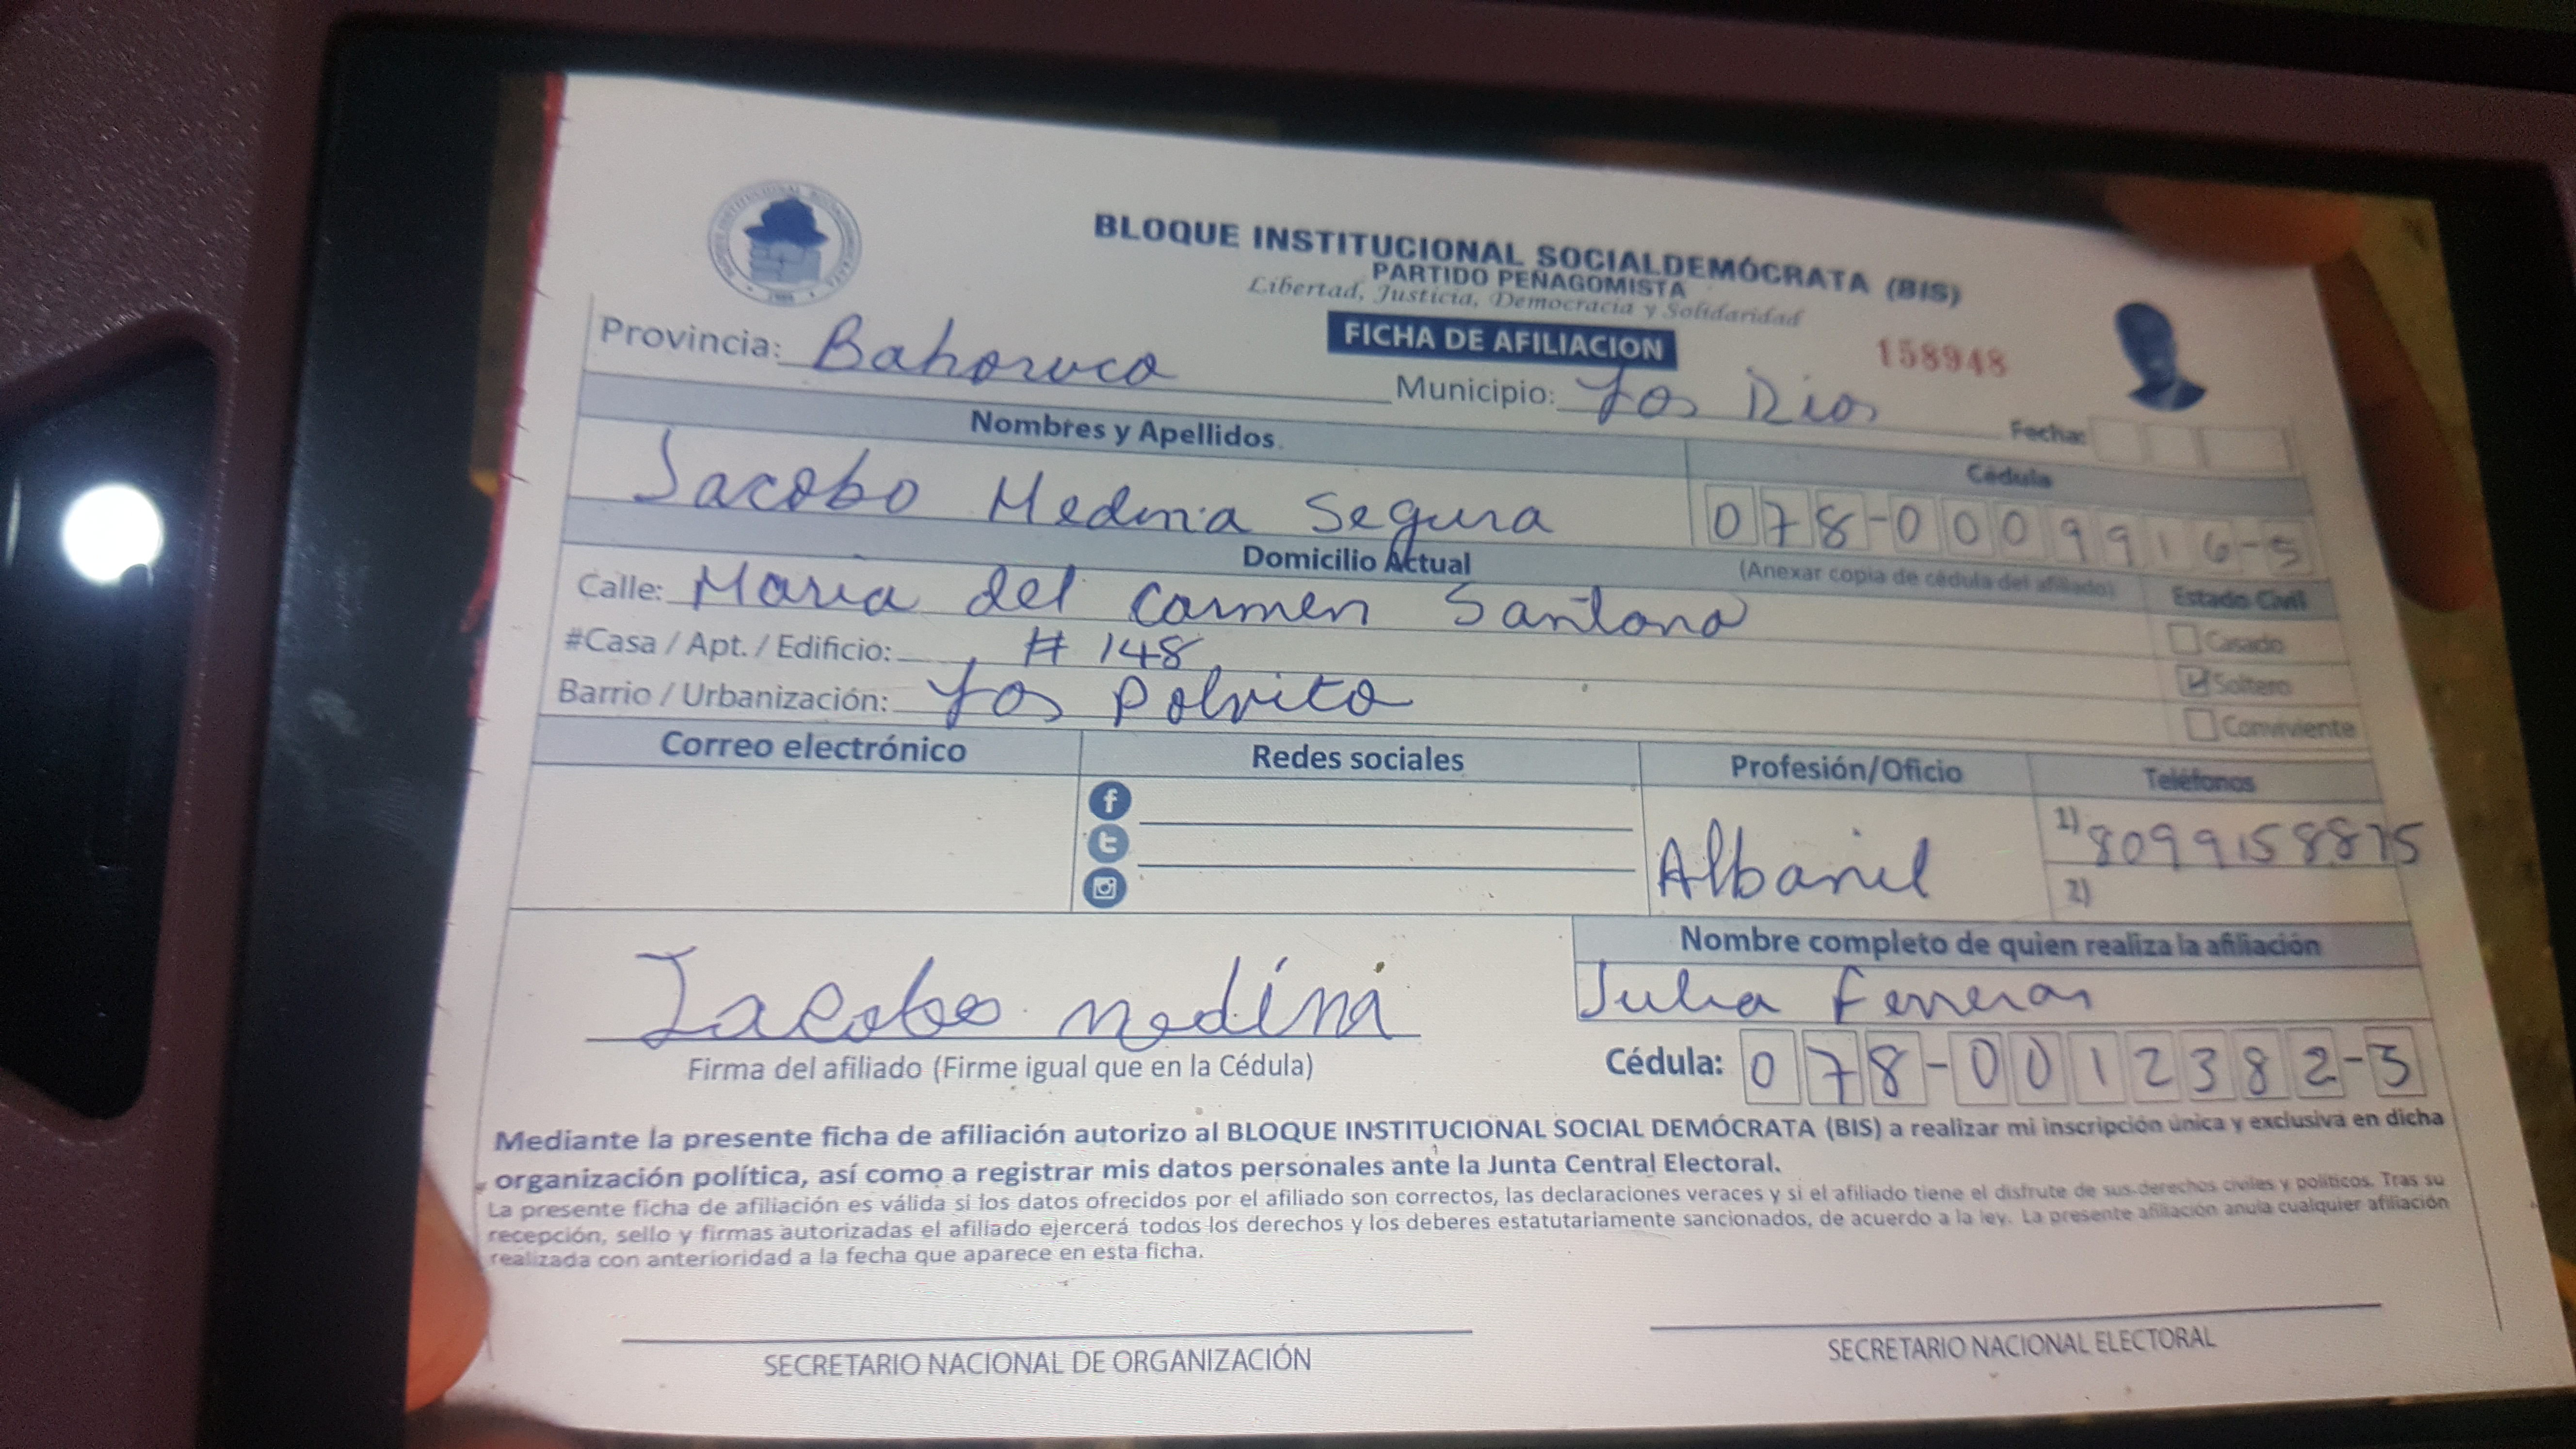 BLOQUE INSTITUCIONAL SOCIALDEMÓCRATA (BIS)
PARTIDO PEÑAGOMISTA
Libertad, Justicia, Democracia y Solidaridad
FICHA DE AFILIACION
158948
Provincia: Bahoruco
Municipio: Los Rios
Fecha:
Nombres y Apellidos
Cédula
Jacobo Medina Segura
078-0009916-5
Domicilio Actual
(Anexar copia de cédula del afiliado)
Estado Civil
Calle: Maria del Carmen Santana
Casado
#Casa / Apt. / Edificio: # 148
Soltero
Barrio / Urbanización: Los Polvito
Conviviente
Correo electrónico
Redes sociales
Profesión/Oficio
Teléfonos
Albanil
1) 8099158875
2)
Nombre completo de quien realiza la afiliación
Julia Ferreras
Jacobo medina
Firma del afiliado (Firme igual que en la Cédula)
Cédula: 078-0012382-3
Mediante la presente ficha de afiliación autorizo al BLOQUE INSTITUCIONAL SOCIAL DEMÓCRATA (BIS) a realizar mi inscripción única y exclusiva en dicha
organización política, así como a registrar mis datos personales ante la Junta Central Electoral.
La presente ficha de afiliación es válida si los datos ofrecidos por el afiliado son correctos, las declaraciones veraces y si el afiliado tiene el disfrute de sus derechos civiles y políticos. Tras su
recepción, sello y firmas autorizadas el afiliado ejercerá todos los derechos y los deberes estatutariamente sancionados, de acuerdo a la ley. La presente afiliación anula cualquier afiliación
realizada con anterioridad a la fecha que aparece en esta ficha.
SECRETARIO NACIONAL DE ORGANIZACIÓN
SECRETARIO NACIONAL ELECTORAL